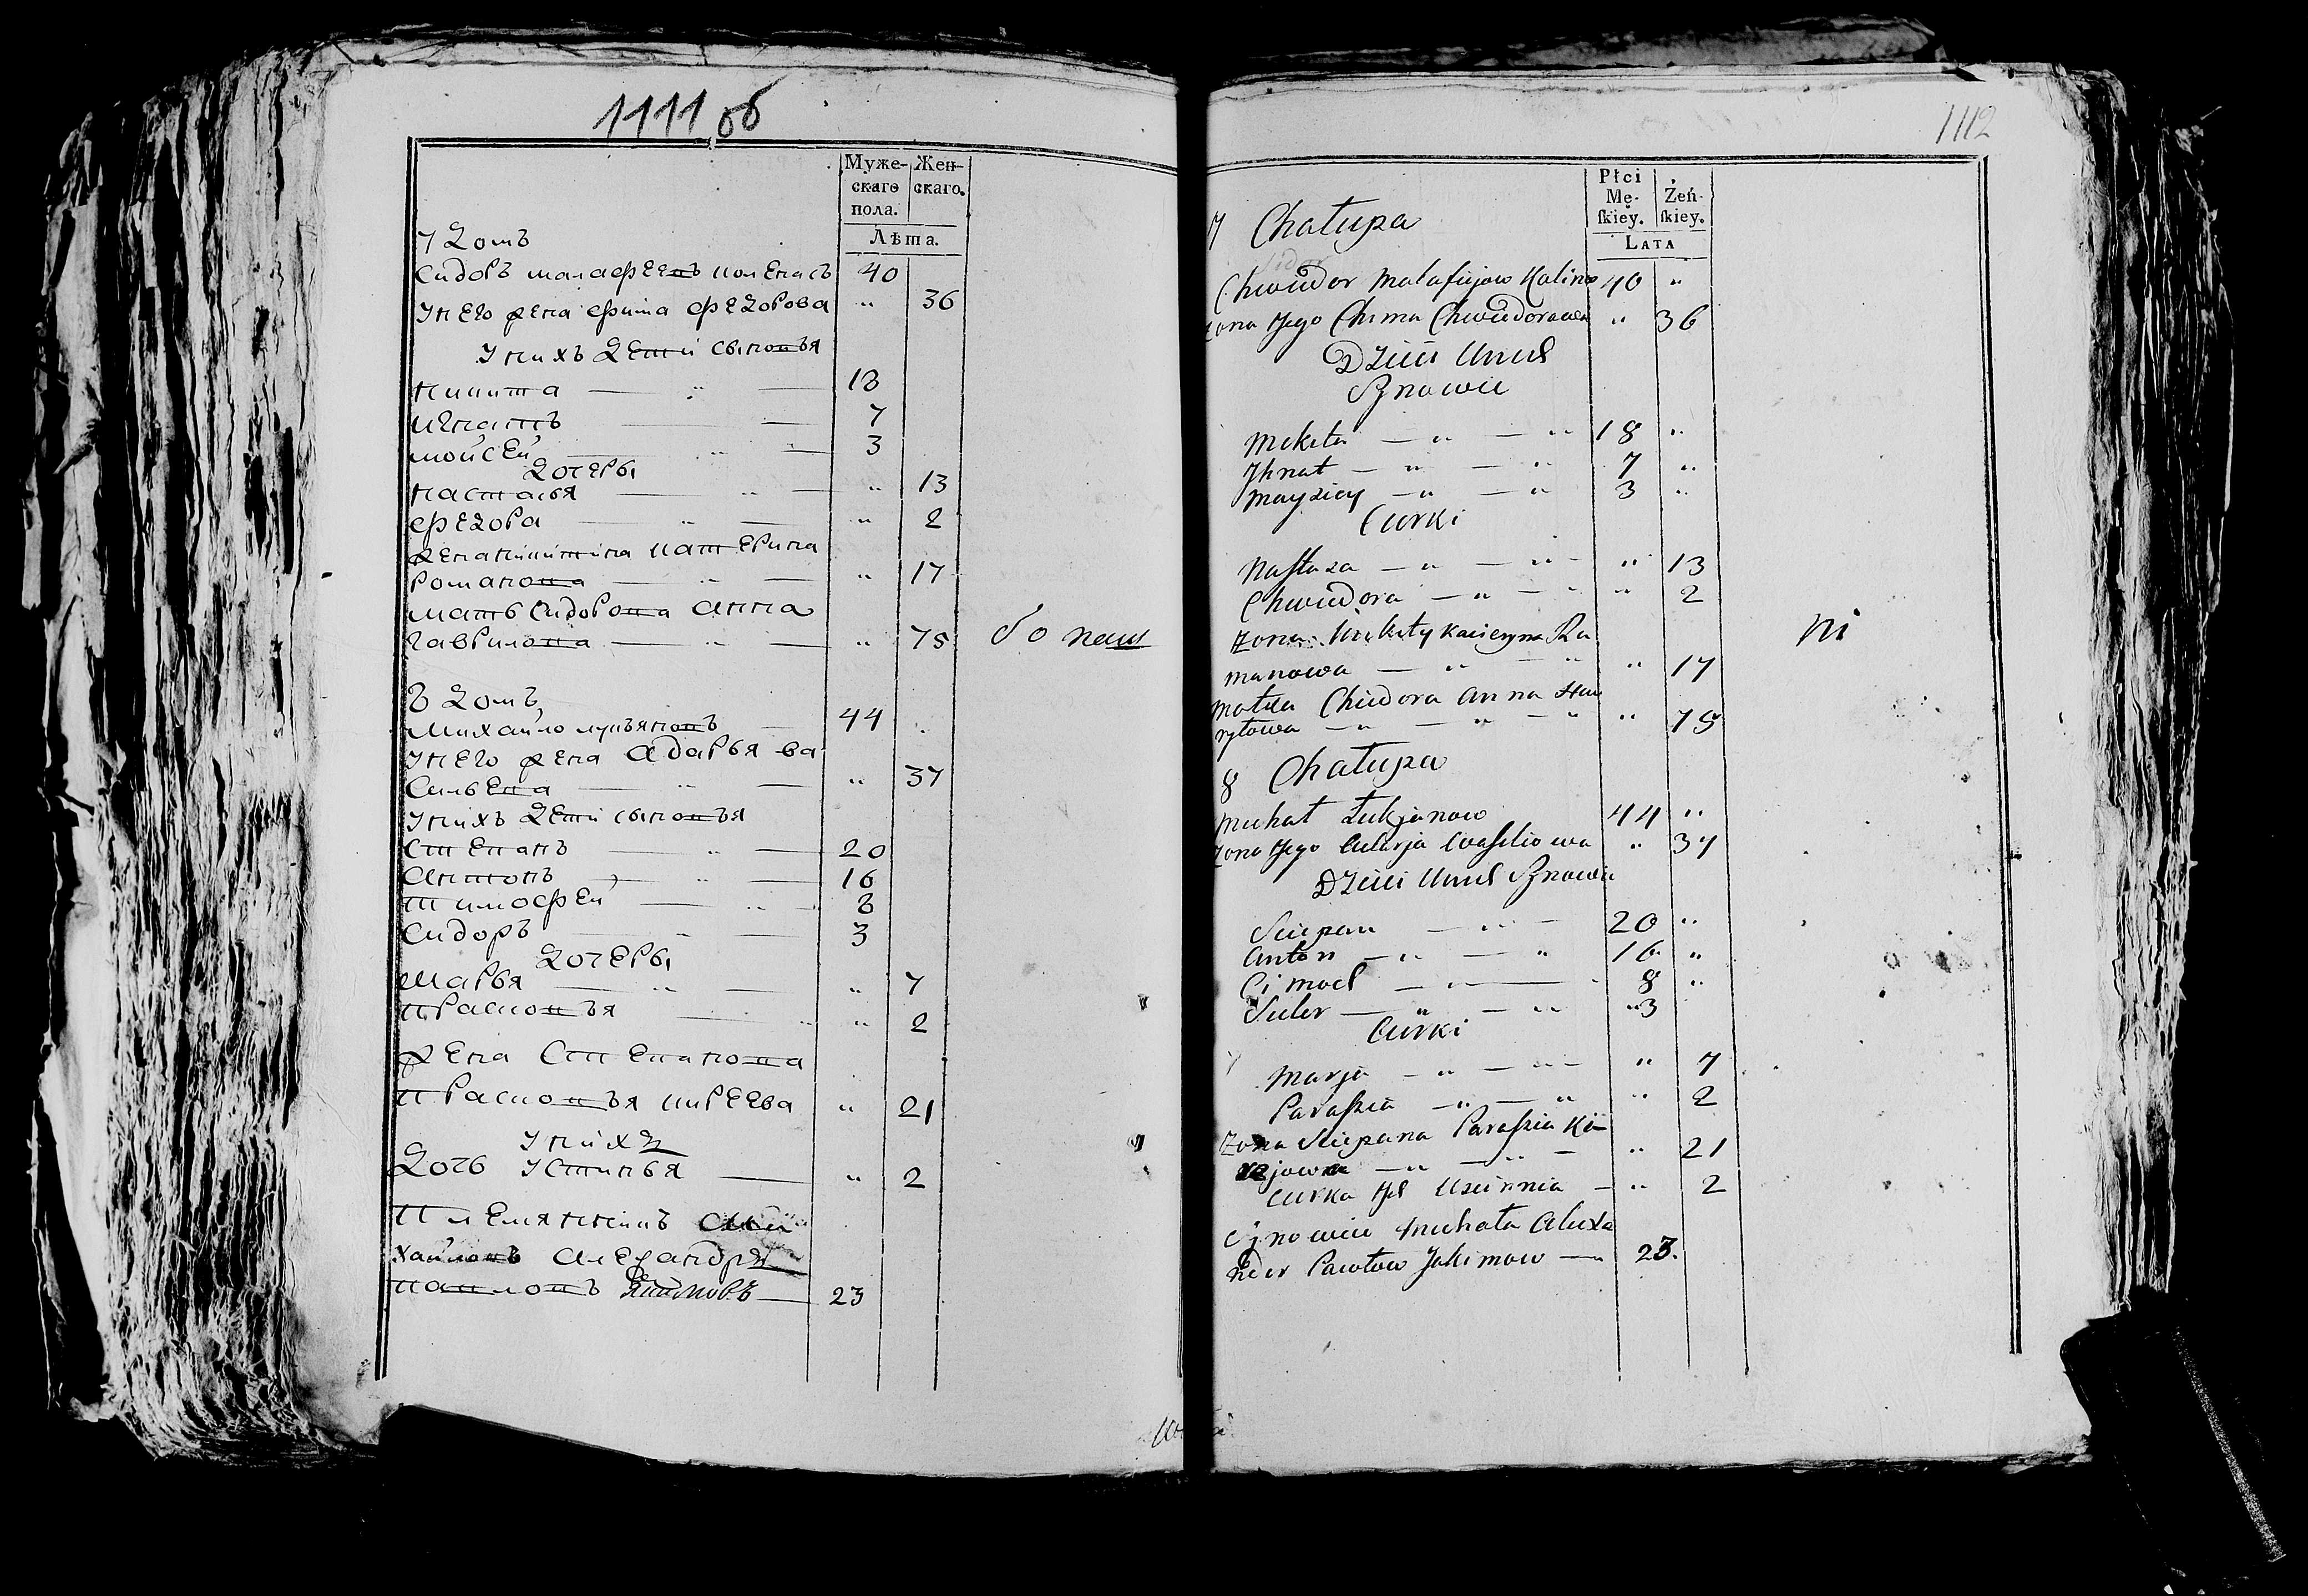 1111 об
Муже-
скаго
пола.
Жен-
скаго.
Лѣта.
7 Домъ
Сидоръ малафеевъ
40
у него жена Фима Федорова " 36
у нихъ дети сыновья
Никита — " — 18
игнатъ — 7
мойсей — " 3
дочеры
настасья — " — " 13
Федора — " — " 2
жена никитина катерина
романова — " — " 17
мать Сидорова анна
гаврилова — " — " 75
8 Домъ
Михайло лукъяновъ — 44
у него жена адарья ва
Сильева — " — " 37
у нихъ дети сыновья
Степанъ — " — 20
антонъ — " — 16
тимофей — " — 8
Сидоръ — " — 3
дочеры
Марья — " — " 7
прасковья — " 2
жена Степанова
прасковья киреева " 21
у нихъ
дочь устинья — " 2
племянникъ ми
хайловъ алезандръ
павловъ — 23
1112
Płci
Mę-
ſkiey.
Żeń-
ſkiey.
LATA
7 Chałupa
Sidor
Chwiedor Małafiejow Kalino 40 "
żona Jego Chima Chwiedorowa " 36
Dzieci Unich
Synowie
Mekita — " — " 18 "
Jhnat — " — " 7 "
Mayziey — " — " 3 "
Curki
Naſtaza — " — " " 13
Chwiedora — " — " " 2
Żona Mikity Kacieryna Ra
manowa — " — " " 17
Matka Chiedora Anna Hau
ryłowa — " — " — " " 75
8 Chałupa
Michał Łukjanow 44 "
żona Jego Adarja Waſiliowa " 37
Dzieci Unich Synowie
Sciepan — " — 20 "
Anton — " — " 16 "
Cimoch — " — 8 "
Sider — " — " " 3
Curki
Marja — " — " — " 7
Paraſkia — " — " " 2
Żona Sciepana Paraſkia Ki-
rejowna — " — " — " 21
Curka Ich Uscinnia — " 2
Synowiec Michała Alexa
nder Pawłow Jakimow — 23.